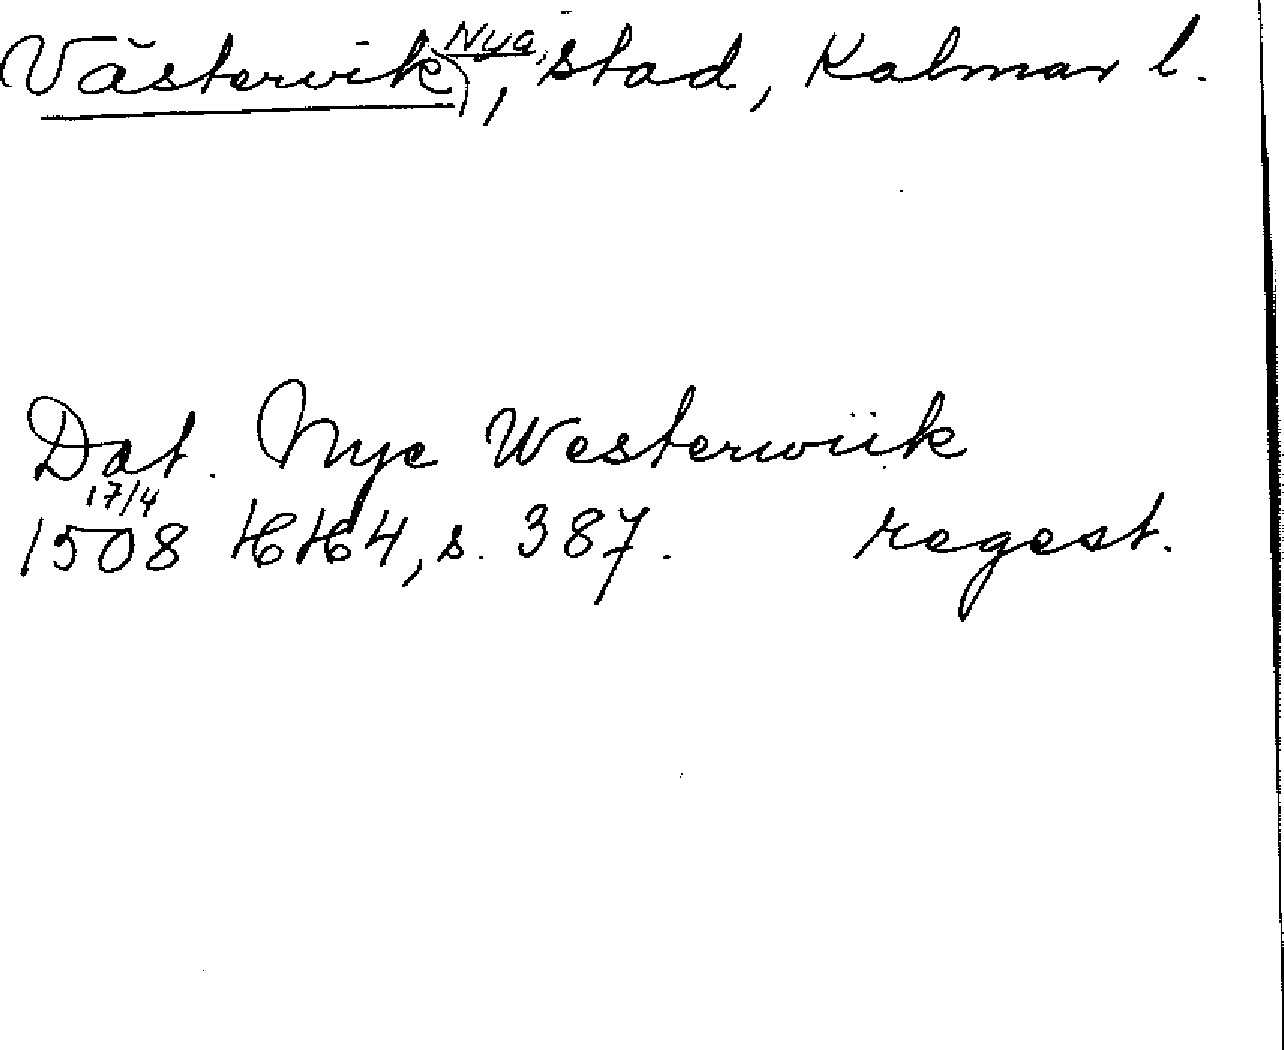 Västervik, Nya, stad, Kalmar l.
Dat. Nye Westerwiik
17/4
1508 HH 4, s. 387. regest.